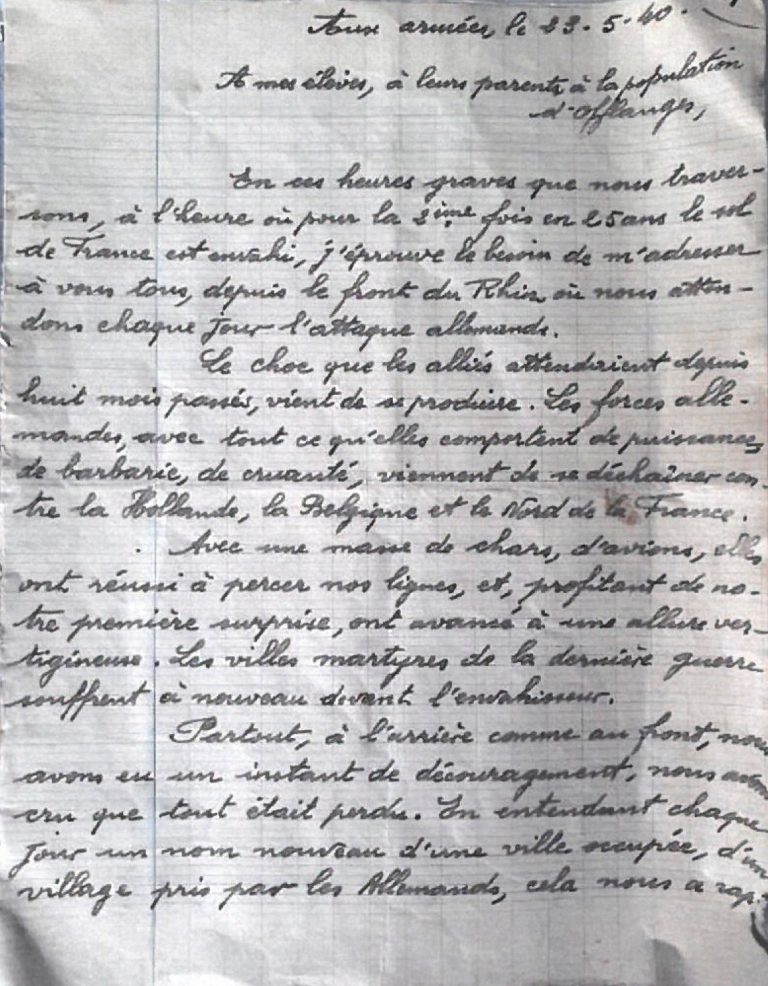 Aux armées, le 23-5-40.
A mes élèves, à leurs parents à la population
d'Offlanges,
En ces heures graves que nous traver-
sons, à l'heure où pour la 2ème fois en 25 ans le sol
de France est envahi, j'éprouve le besoin de m'adresser
à vous tous, depuis le front du Rhin où nous atten-
dons chaque jour l'attaque allemande.
Le choc que les alliés attendaient depuis
huit mois passés, vient de se produire. Les forces alle-
mandes, avec tout ce qu'elles comportent de puissance,
de barbarie, de cruauté, viennent de se déchaîner con-
tre la Hollande, la Belgique et le Nord de la France.
Avec une masse de chars, d'avions, elles
ont réussi à percer nos lignes, et, profitant de no-
tre première surprise, ont avancé à une allure ver-
tigineuse. Les villes martyres de la dernière guerre
souffrent à nouveau devant l'envahisseur.
Partout, à l'arrière comme au front, nous
avons eu un instant de découragement, nous avons
cru que tout était perdu. En entendant chaque
jour un nom nouveau d'une ville occupée, d'un
village pris par les Allemands, cela nous a rap-